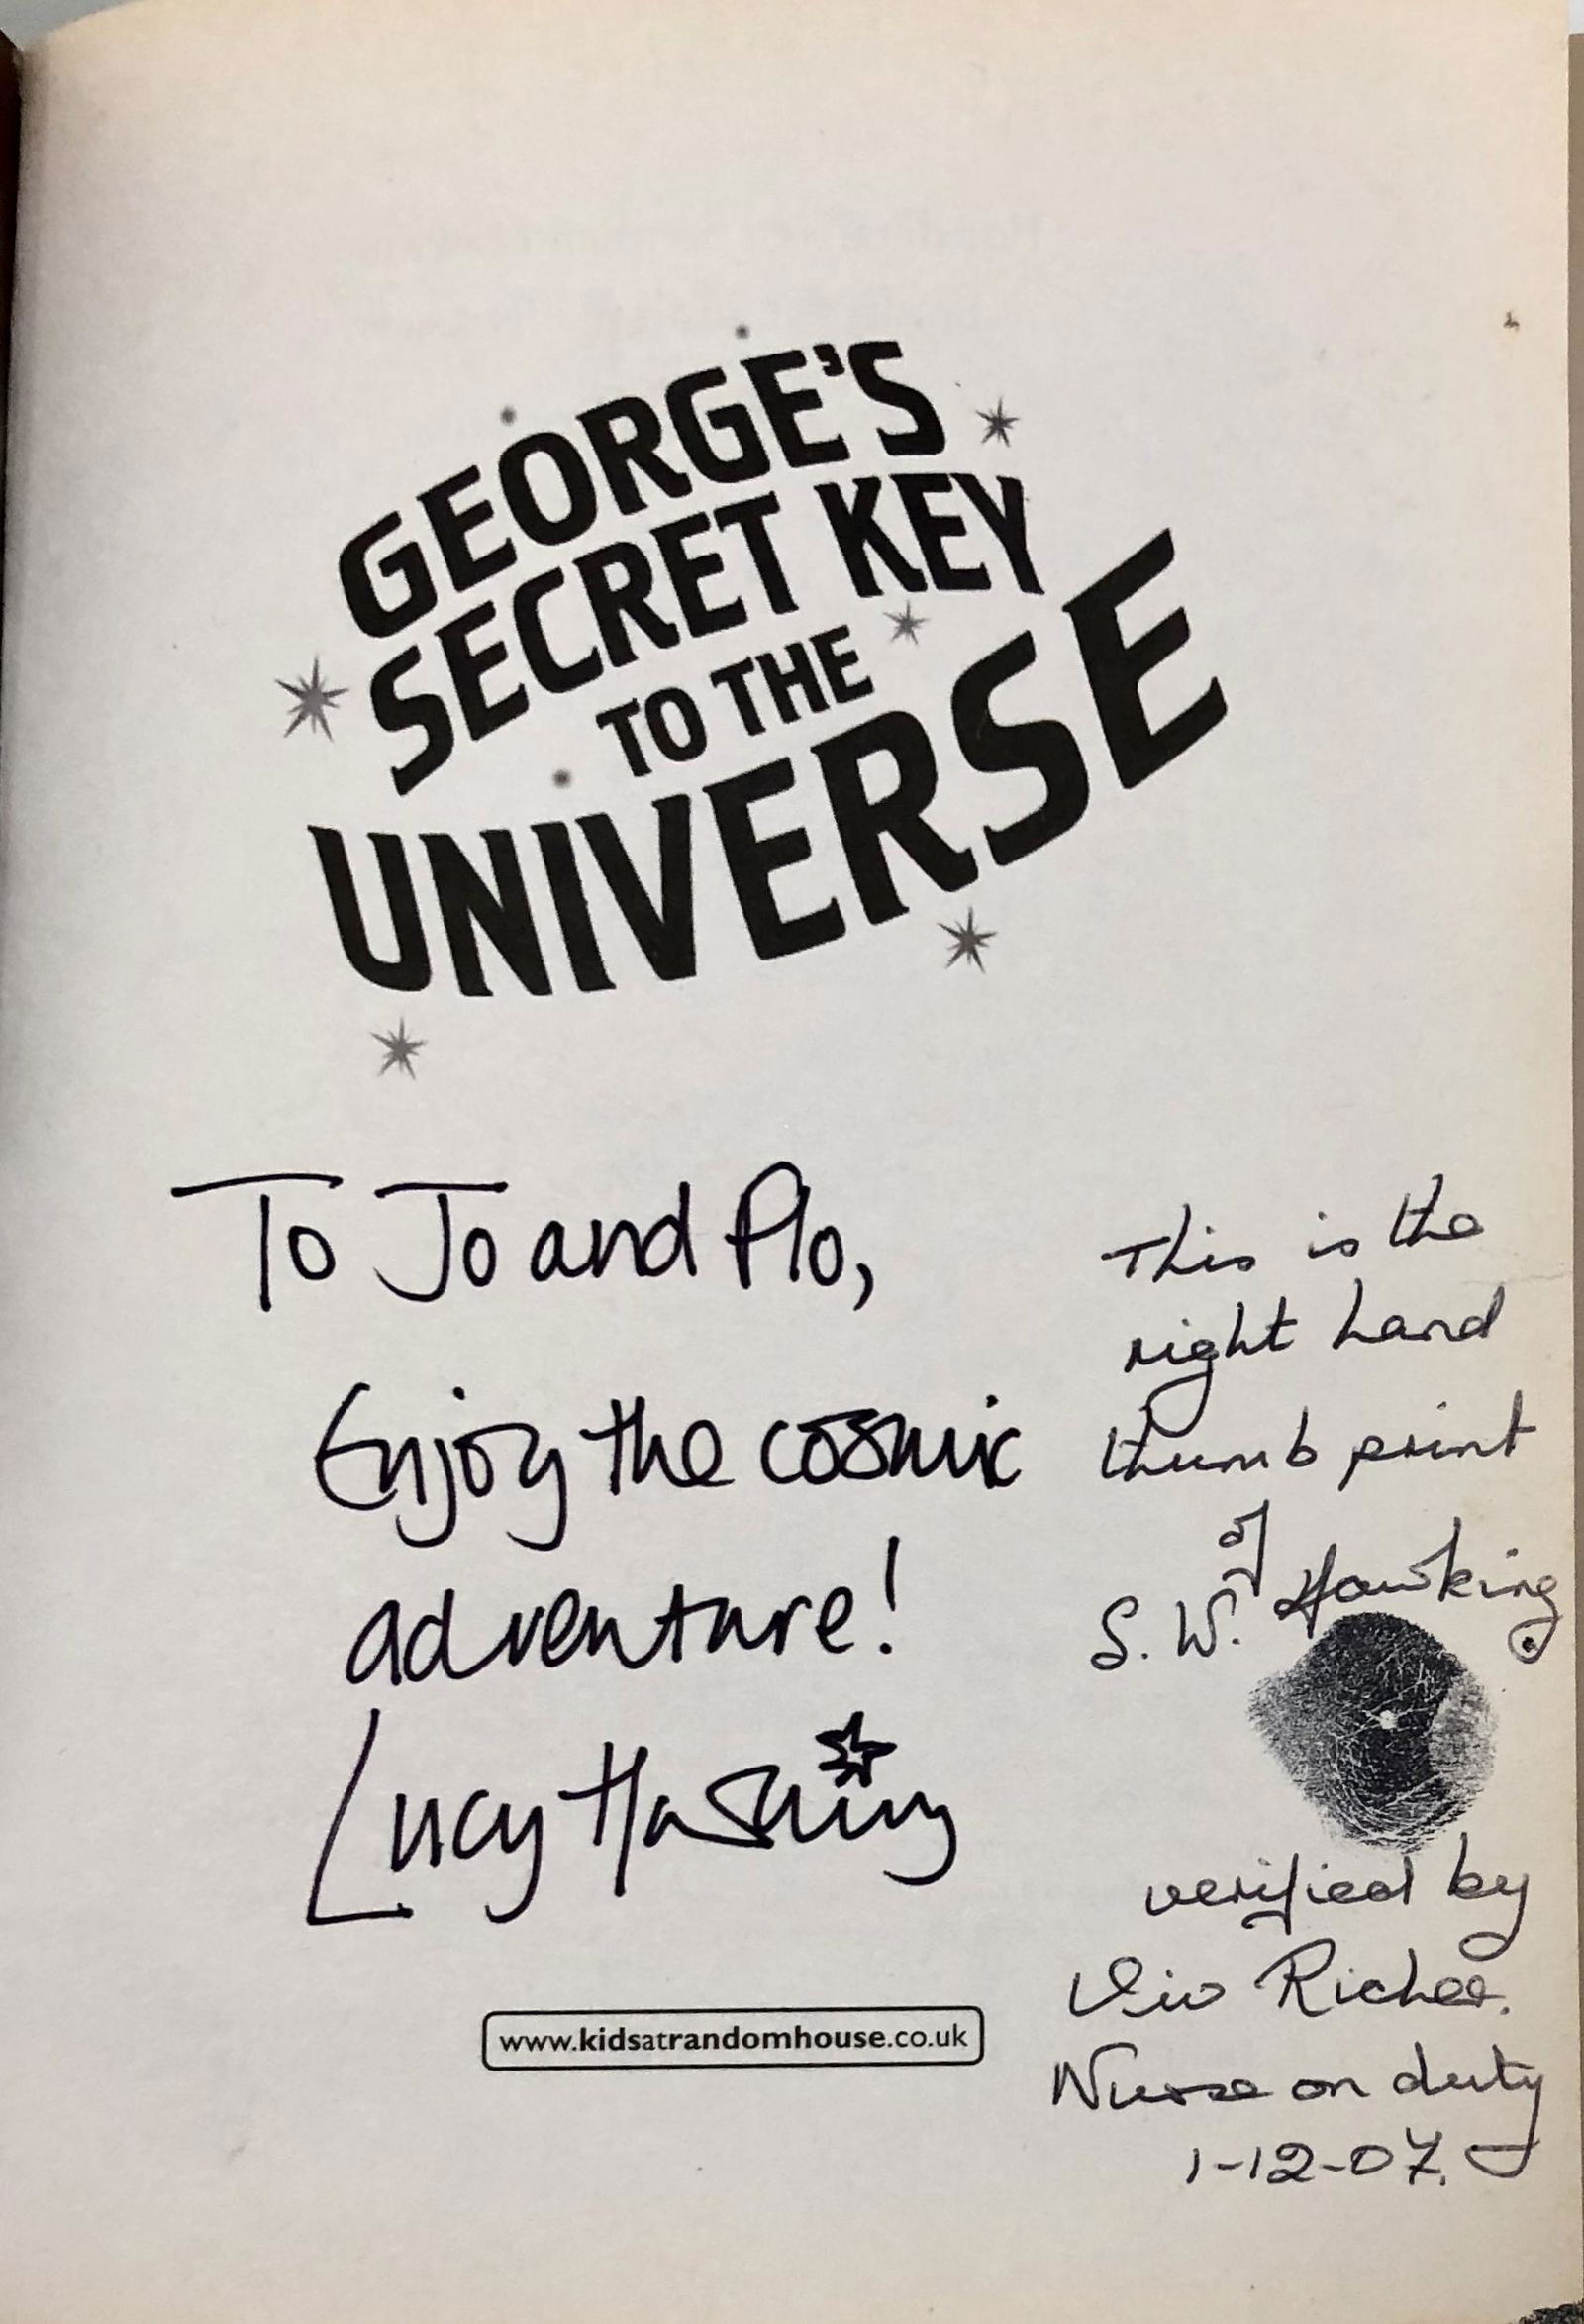 GEORGE'S
SECRET KEY
TO THE
UNIVERSE
To Jo and Flo,
Enjoy the cosmic
adventure!
Lucy Hawking
www.kidsatrandomhouse.co.uk
This is the
right hand
thumb print
of
S. W. Hawking.
verified by
Viv Richer.
Nurse on duty
1-12-07.